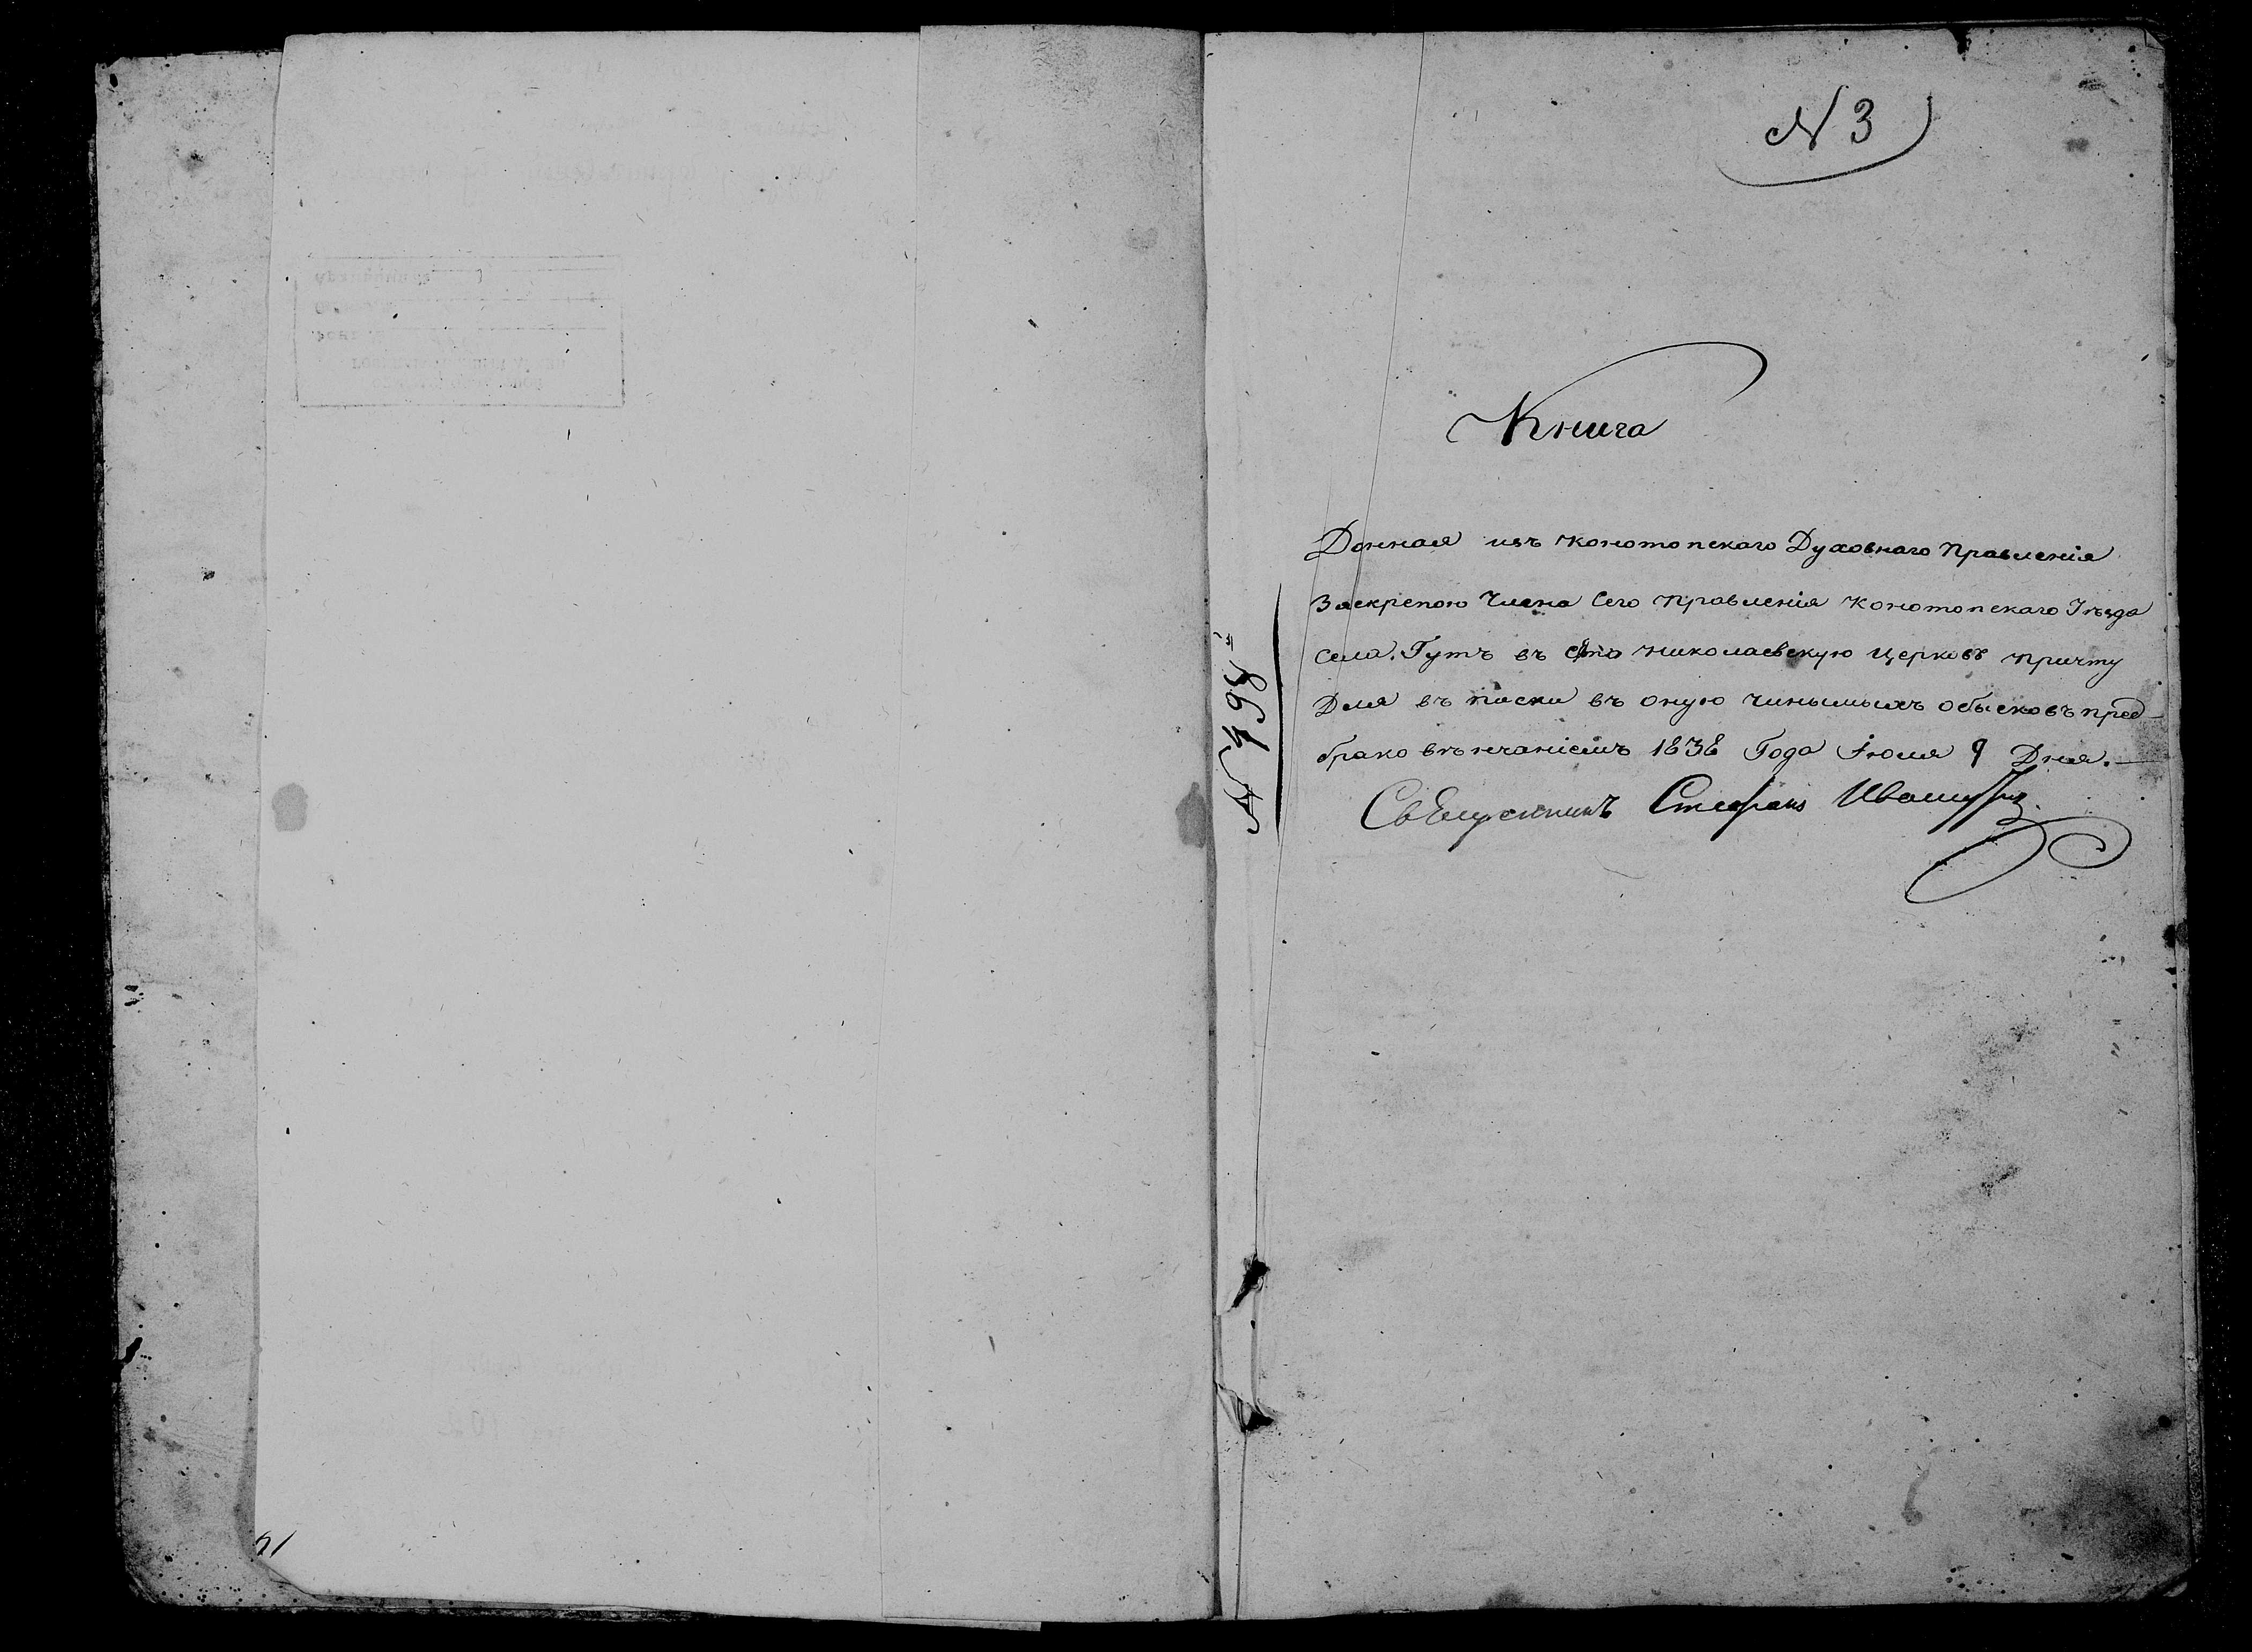 N 3
Книга
Данная изъ Конотопскаго Духовнаго Правленія
Заскрепою Члена Сего Правленія Конотопскаго
Села Гутъ въ Николаевскую Церковъ причту
Для въ писки въ оную чинымыхъ обысковъ пред
брако вѣнчаніемъ 1838 Года Іюля 9 Дня.
Священникъ Стефанъ
N 798